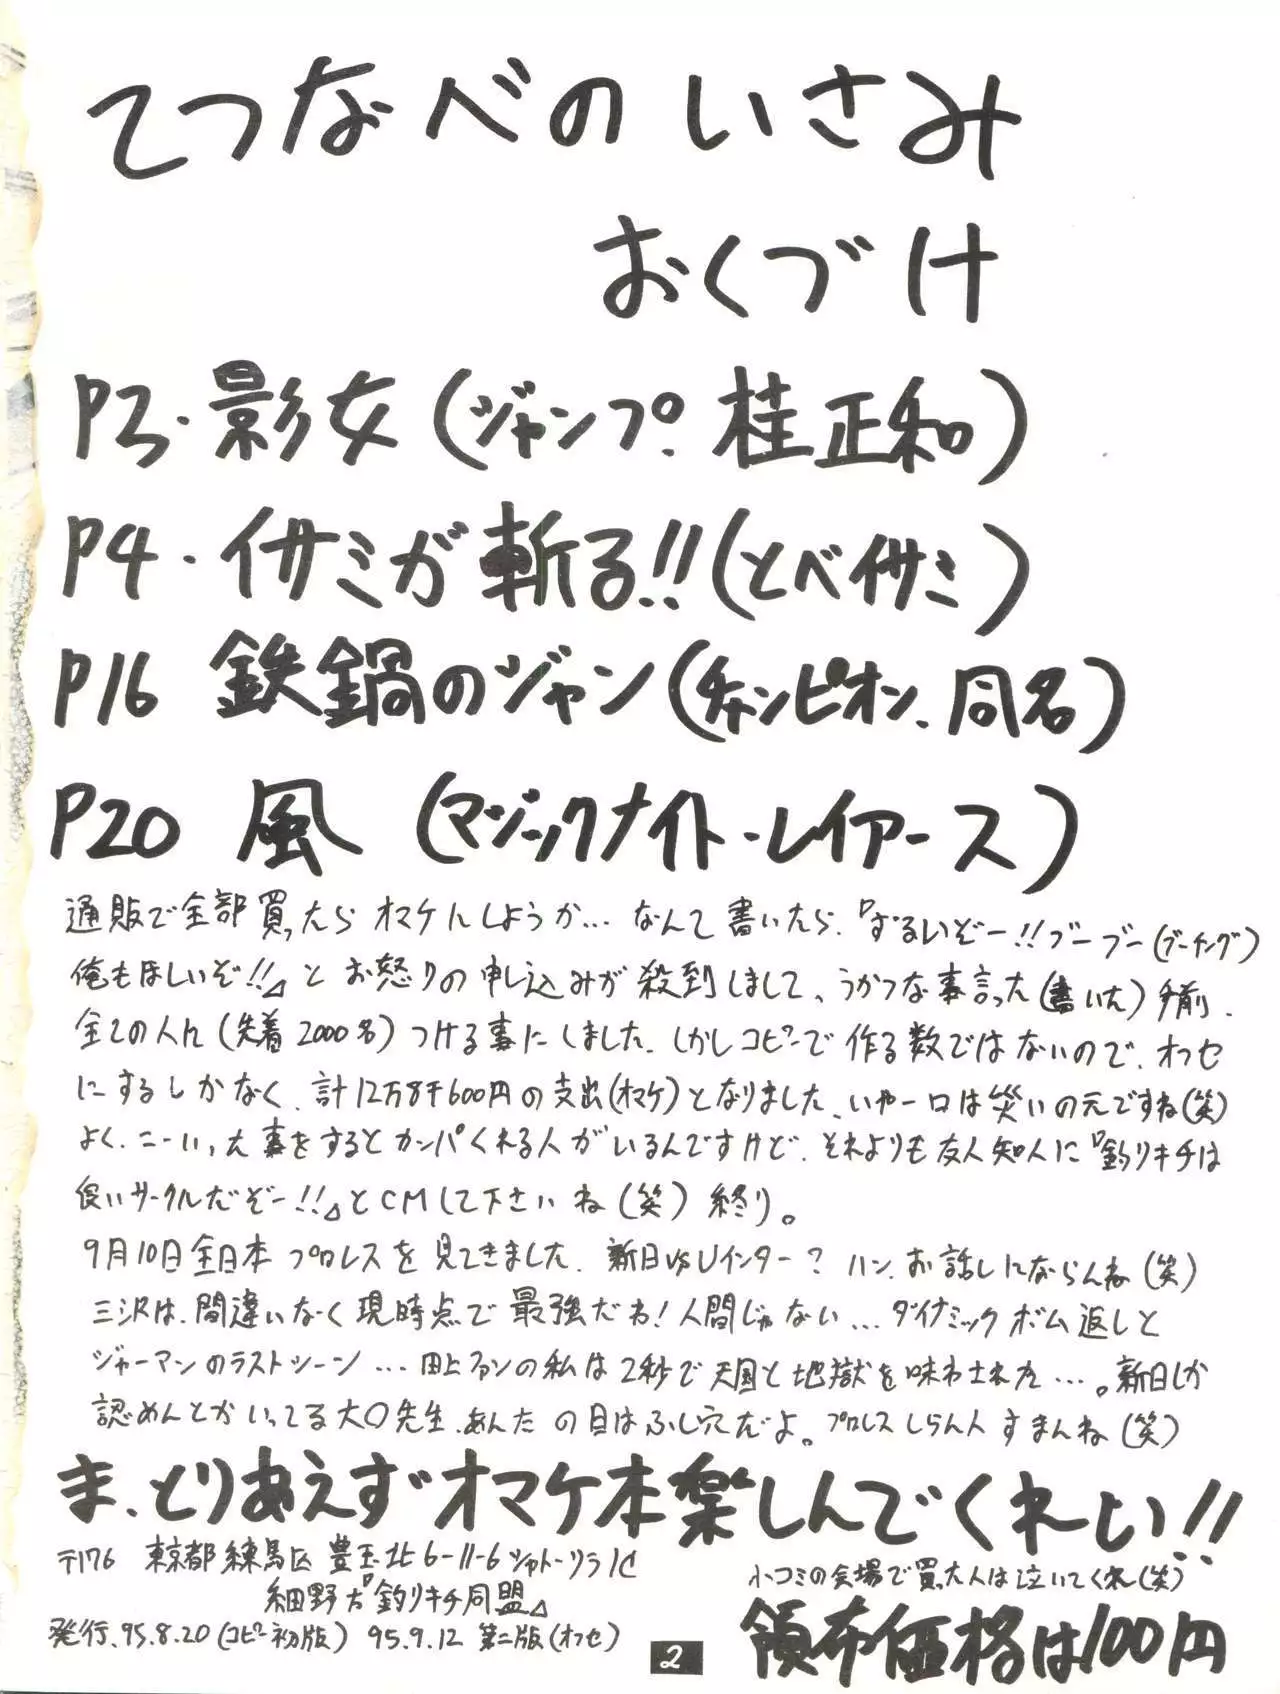 てつなべのいさみ
おくづけ
P3・影女(ジャンプ、桂正和)
P4・イサミが斬る!!(とべイサミ)
P16 鉄鍋のジャン(チャンピオン、同名)
P20 風 (マジックナイト・レイアース)
通販で全部買ったらオマケにしようか…なんて書いたら、『ずるいぞー!!ブーブー(ブーイング)
俺もほしいぞ!!』とお怒りの申し込みが殺到しまして、うかつな事言った(書いた)手前、
全ての人に(先着2000名)つける事にしました。しかしコピーで作る数ではないので、オフセ
にするしかなく、計12万8千600円の支出(オマケ)となりました、いやー口は災いの元ですね(笑)
よく、こーいった事をするとカンパくれる人がいるんですけど、それよりも友人知人に『釣りキチは
良いサークルだぞー!!』とCMして下さいね(笑)終り。
9月10日全日本プロレスを見てきました、新日vsUインター?ハン、お話しにならんね(笑)
三沢は、間違いなく現時点で最強だわ!人間じゃない…ダイナミックボム返しと
ジャーマンのラストシーン…田上ファンの私は2秒で天国と地獄を味わされた…。新日しか
認めんとかいってる大〇先生、あんたの目はふし穴だよ。プロレスしらん人すまんね(笑)
ま、とりあえずオマケ本楽しんでくれーい!!
〒176 東京都練馬区豊玉北6-11-6シャトーソラ1C
小コミの会場で買った人は泣いてくれ(笑)
細野が『釣りキチ同盟』
発行、95.8.20(コピー初版) 95.9.12 第二版(オフセ)
領布価格は100円
2